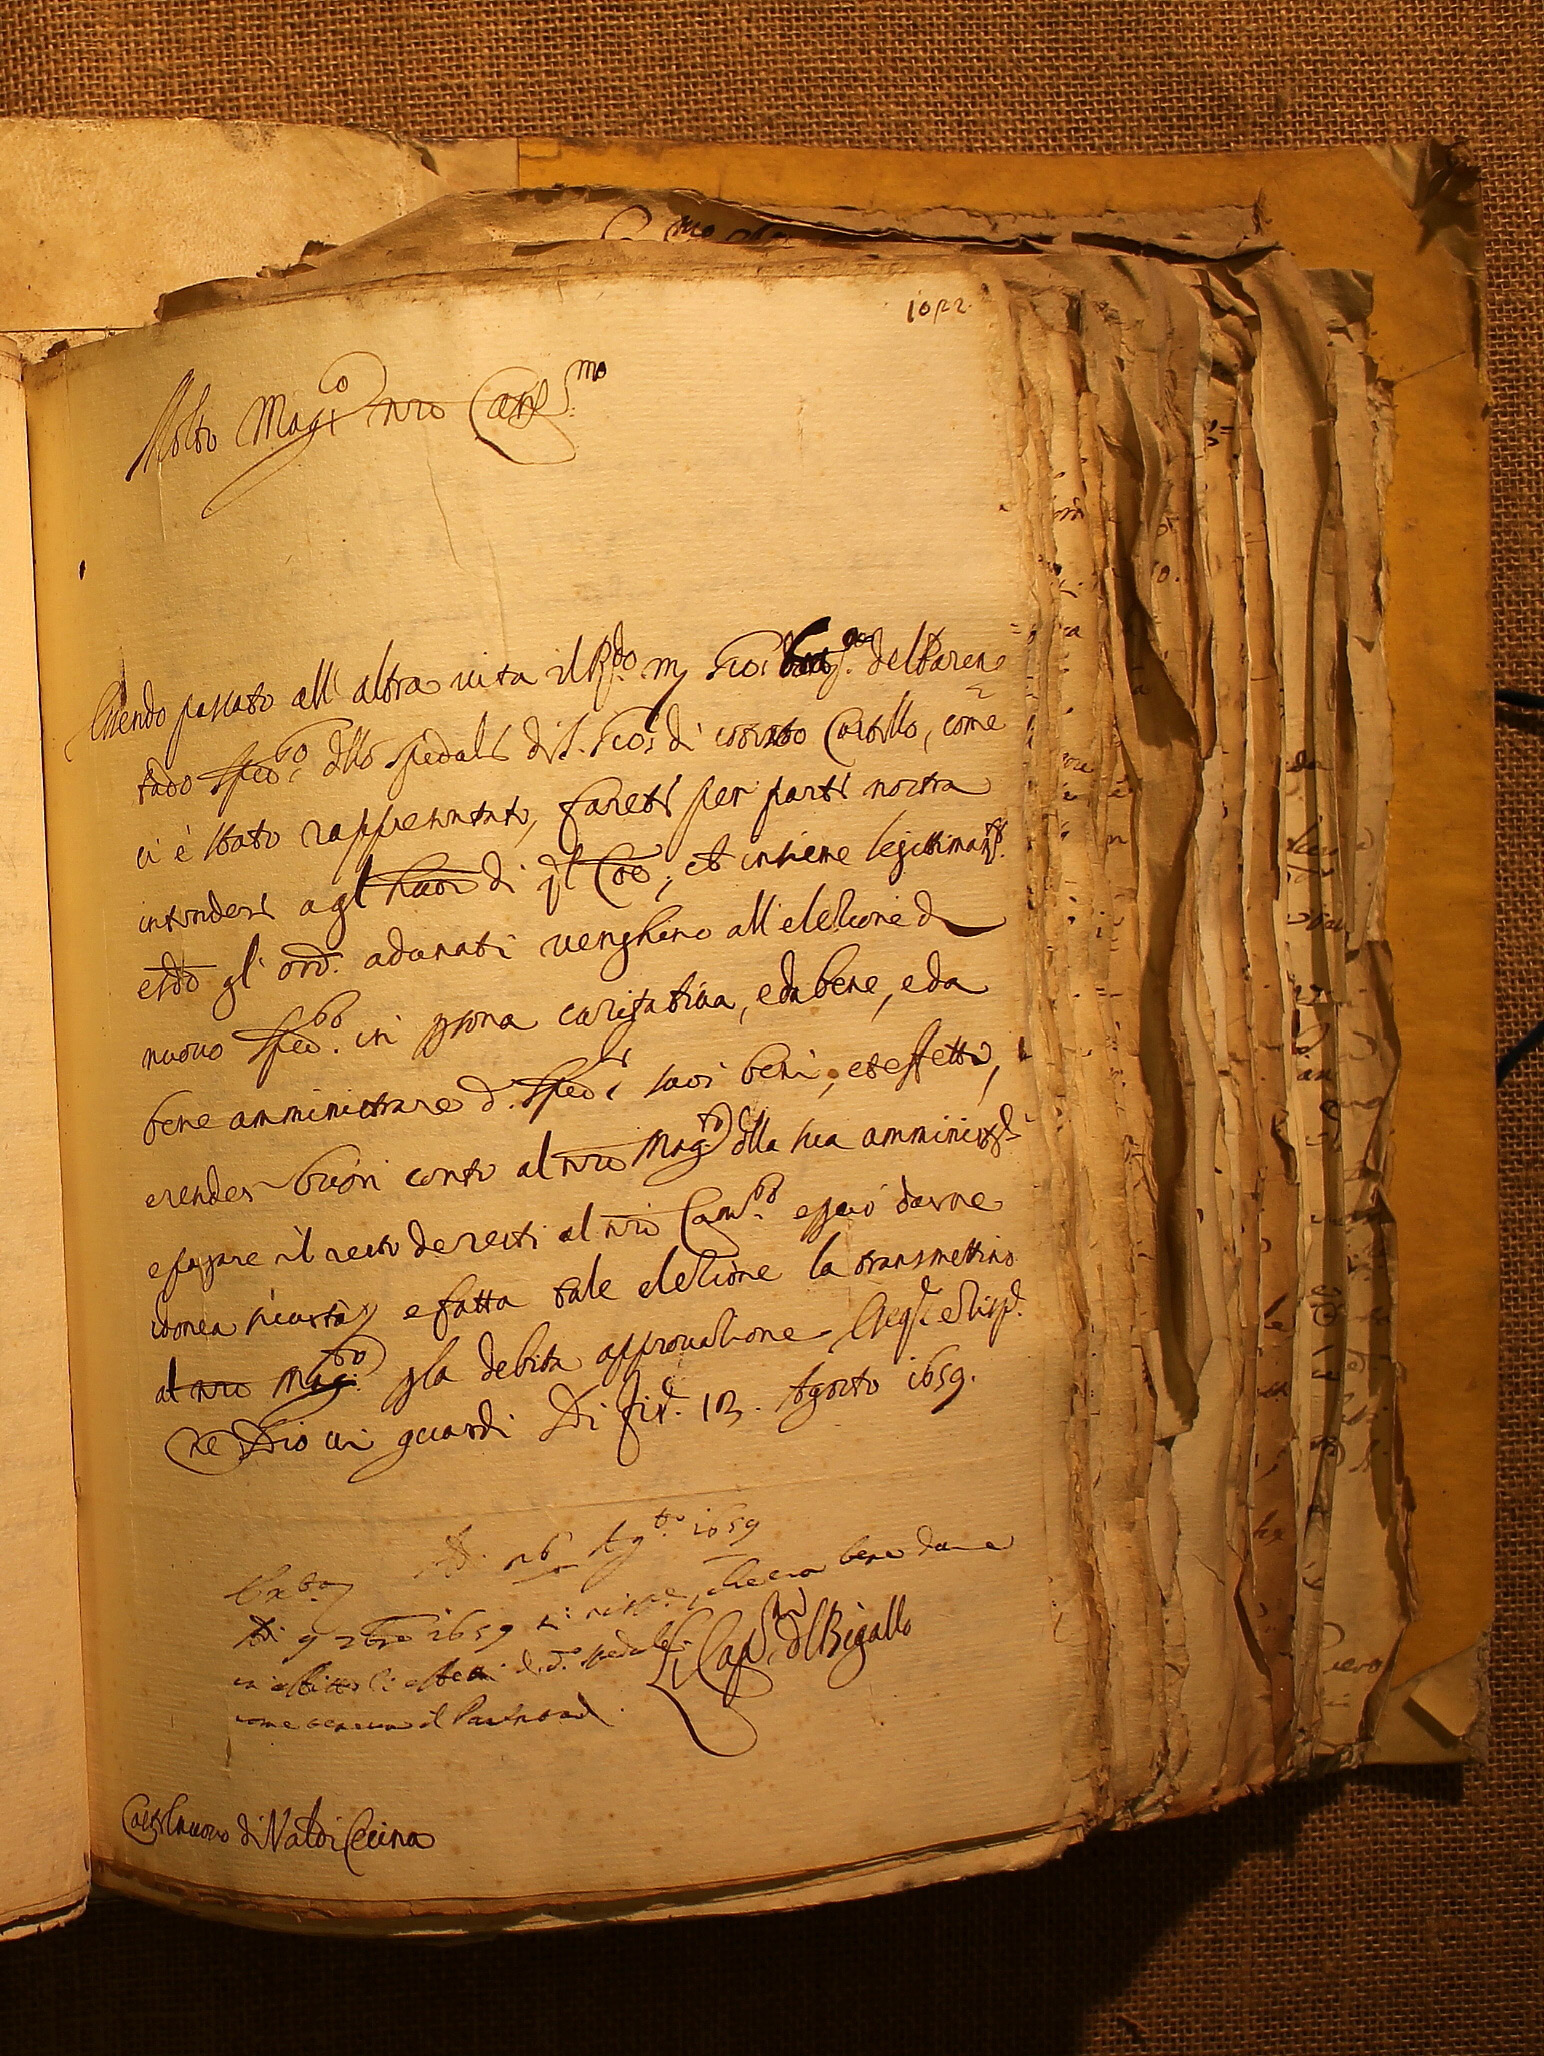 1022
Molto Mag.co nro Cariss.mo
Essendo passato all'altra vita il R.do m Gio: del Paren
tado Sped.go dllo spedale di S. Gio: di cotesto Castello, come
ci è stato rappresentato, farete per parte nostra
intendere agl' huoi di qt Coe, et insieme legittimam.te
esdo gl' ord. adunati venghino all'eletione d
nuovo Sped.go in psona caritativa, e da bene, e da
bene amministrare d. Sped.e suoi beni, et effetti,
e render buon conto al nro Mag.to dlla sua amministr.
e pagare il resto de resti al nro Cam.go e può darne
idonea sicurtà, e fatta tale eletione la transmettino
al nro Mag.to p la debita approuatione
Dio vi guardi Di fir. 13. Agosto 1659.
A. 26 Ag.to 1659
Di 9 1659 bene darne
in affitto li d. d.o spedale
come il
Li Cap.ni dl Bigallo
Castelnuovo di Val di Cecina